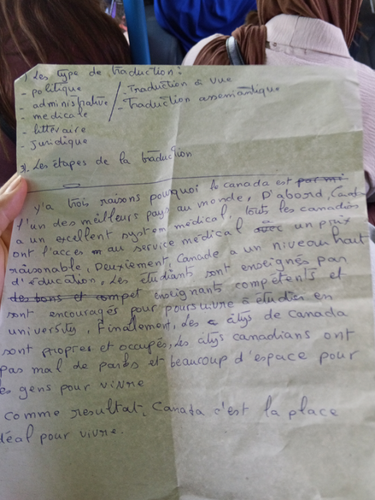 1. Les type de traduction:
- politique
- administrative
- medicale
- littéraire
- juridique
- Traduction à vue
- Traduction
3. Les étapes de la traduction
y'a trois raisons pourquoi le canada est par mi
l'un des meilleurs pays au monde, D'abord, Canada
a un excellent system médical, touts les canadiens
ont l'acces au service medical avec un prix
raisonable, Deuxiement, Canade a un niveau haut
d'éducation, Les étudiants sont enseignés par
des bons et compet enseignants compétents et
sont encouragés pour poursuivre à études en
university, Finallement, les citys de Canada
sont propres et occupés, les citys canadians ont
pas mal de parks et beaucoup d'espace pour
les gens pour vivre
Comme resultat, Canada c'est la place
idéal pour vivre.